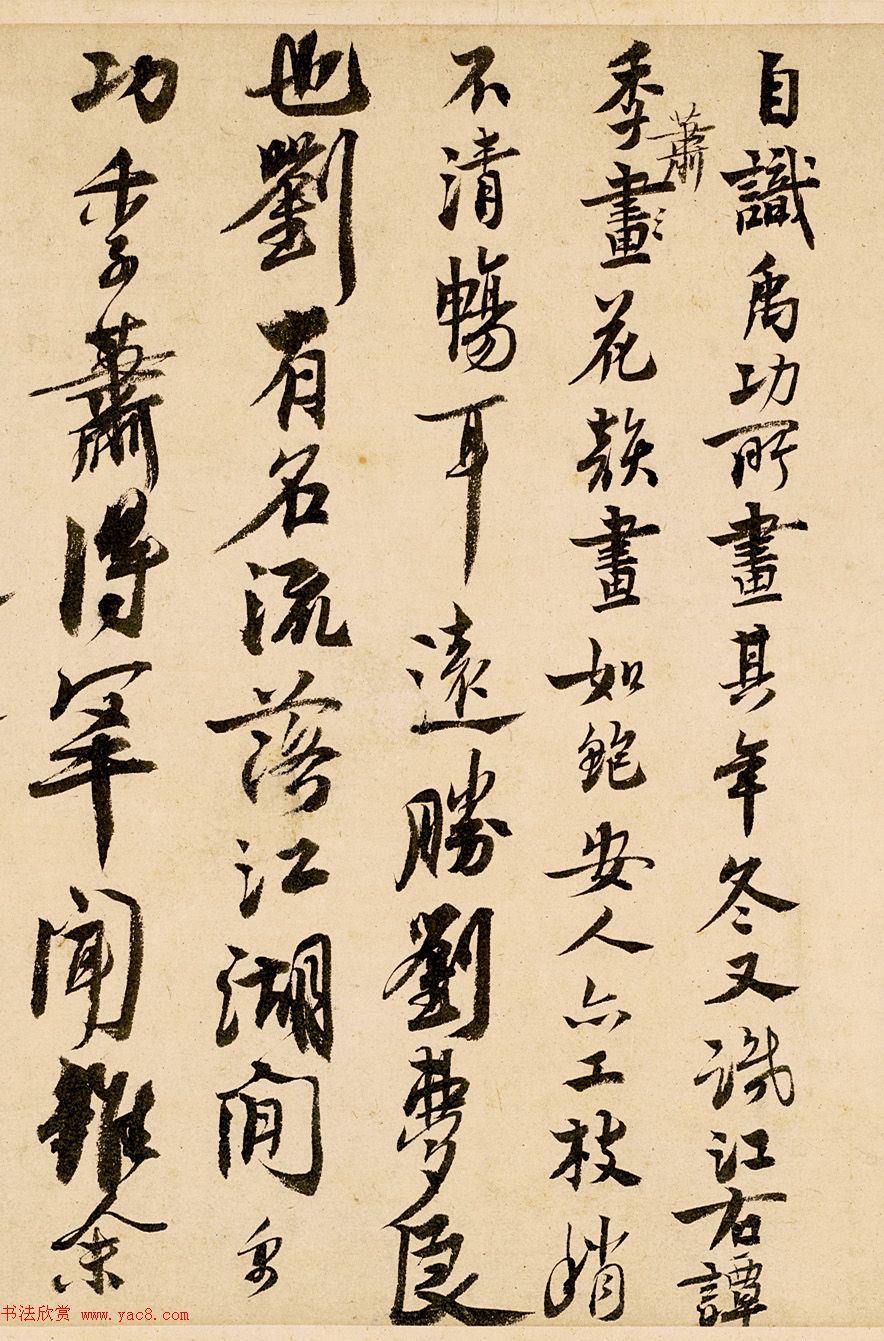 自識禹功所畫其年冬又識江右譚
季蕭畫花畫如鮑安人亦工枝稍
不清暢耳遠勝劉夢良
也劉有名流落江湖間禹
功季蕭得罕聞雖余
书法欣赏 www.yac8.com